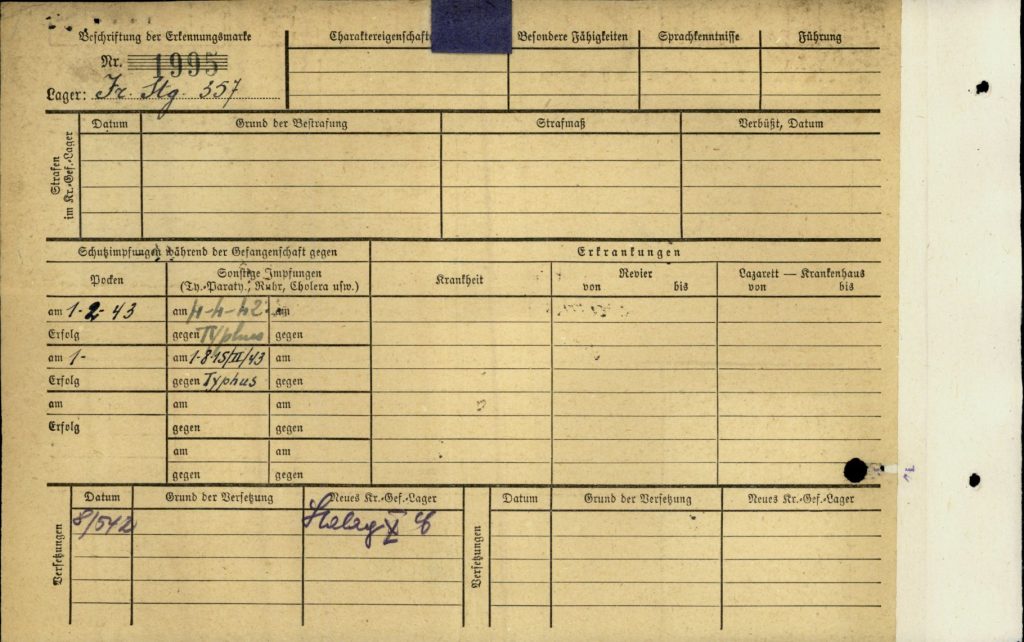 Beschriftung der Erkennungsmarke
Nr. 1995
Lager: Fr. Stg. 357
Charaktereigenschaft
Besondere Fähigkeiten
Sprachkenntnisse
Führung
Strafen im Kr.-Gef.-Lager
Datum
Grund der Bestrafung
Strafmaß
Verbüßt, Datum
Schutzimpfungen während der Gefangenschaft gegen
Erkrankungen
Pocken
Sonstige Impfungen
(Ty.-Paraty., Ruhr, Cholera usw.)
Krankheit
Revier
von bis
Lazarett — Krankenhaus
von bis
am 1-2-43 am 4-4-42 am
Erfolg gegen Typhus gegen
am 1- am 1-8-15/II/43 am
Erfolg gegen Typhus gegen
am am am
Erfolg gegen gegen
am am
gegen gegen
Versetzungen
Datum
Grund der Versetzung
Neues Kr.-Gef.-Lager
8/542 Stalag X
Versetzungen
Datum
Grund der Versetzung
Neues Kr.-Gef.-Lager